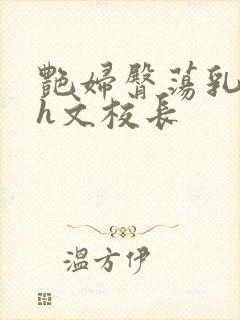 艶婦臀蕩乳
h文校長
溫方伊